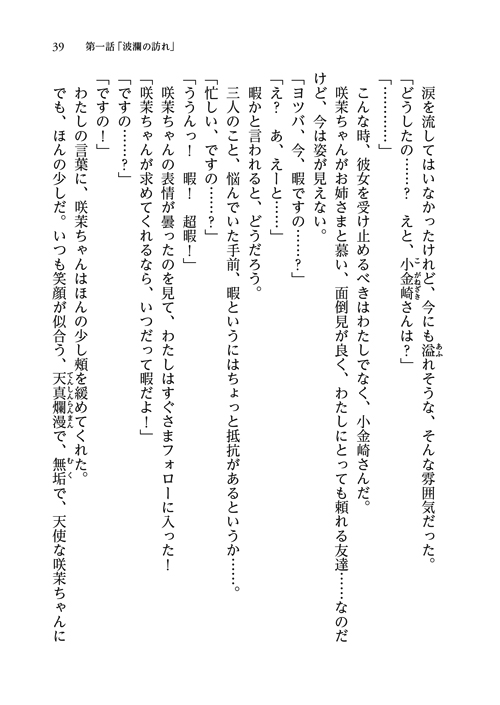 39　第一話「波瀾の訪れ」
涙を流してはいなかったけれど、今にも溢れそうな、そんな雰囲気だった。
あふ
「どうしたの……？　えと、小金崎さんは？」
こがねざき
「…………」
こんな時、彼女を受け止めるべきはわたしでなく、小金崎さんだ。
咲茉ちゃんがお姉さまと慕い、面倒見が良く、わたしにとっても頼れる友達……なのだ
けど、今は姿が見えない。
「ヨツバ、今、暇ですの……？」
「え？　あ、えーと……」
暇かと言われると、どうだろう。
三人のこと、悩んでいた手前、暇というにはちょっと抵抗があるというか……。
「忙しい、ですの……？」
「ううんっ！　暇！　超暇！」
咲茉ちゃんの表情が曇ったのを見て、わたしはすぐさまフォローに入った！
「咲茉ちゃんが求めてくれるなら、いつだって暇だよ！」
「ですの……？」
「ですの！」
わたしの言葉に、咲茉ちゃんはほんの少し頬を緩めてくれた。
でも、ほんの少しだ。いつも笑顔が似合う、天真爛漫で、無垢で、天使な咲茉ちゃんに
てんしんらんまん
むく